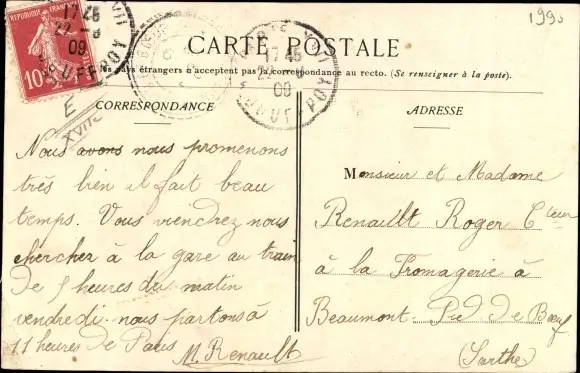 1995
RÉPUBLIQUE FRANÇAISE
10
17 45
22-8
09
CARTE POSTALE
pays étrangers n'acceptent pas la correspondance au recto. (Se renseigner à la poste).
CORRESPONDANCE
E
XVIIe
Nous avons nous promenons
très bien il fait beau
temps. Vous viendrez nous
chercher à la gare au train
de 5 heures du matin
vendredi nous partons à
11 heures de Paris
M. Renault
ADRESSE
Monsieur et Madame
Renault Roger Cteur
à la Fromagerie à
Beaumont-Pied-De-Bœuf
(Sarthe)